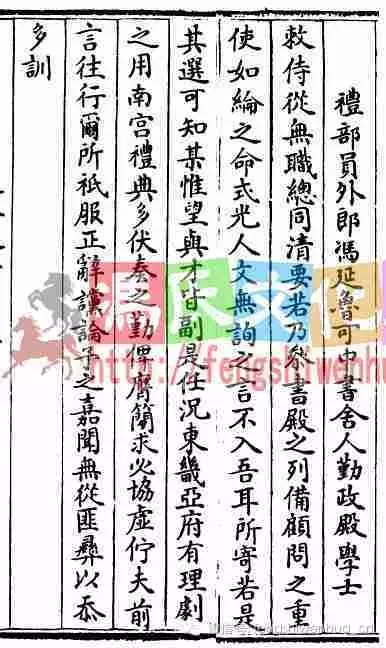 禮部員外郎馮延魯可中書舍人勤政殿學士
敕侍從無職總同清要若乃
書殿之列備顧問之重
使如綸之命式光人文無詢之言不入吾耳所寄若是
其選可知某惟望與才皆副是任況東畿亞府有理劇
之用南宮禮典多伏奏之勤俾膺簡求必協虛佇夫前
言往行爾所祗服正辭讜論予之嘉聞無從匪彝以忝
多訓
馮氏文化